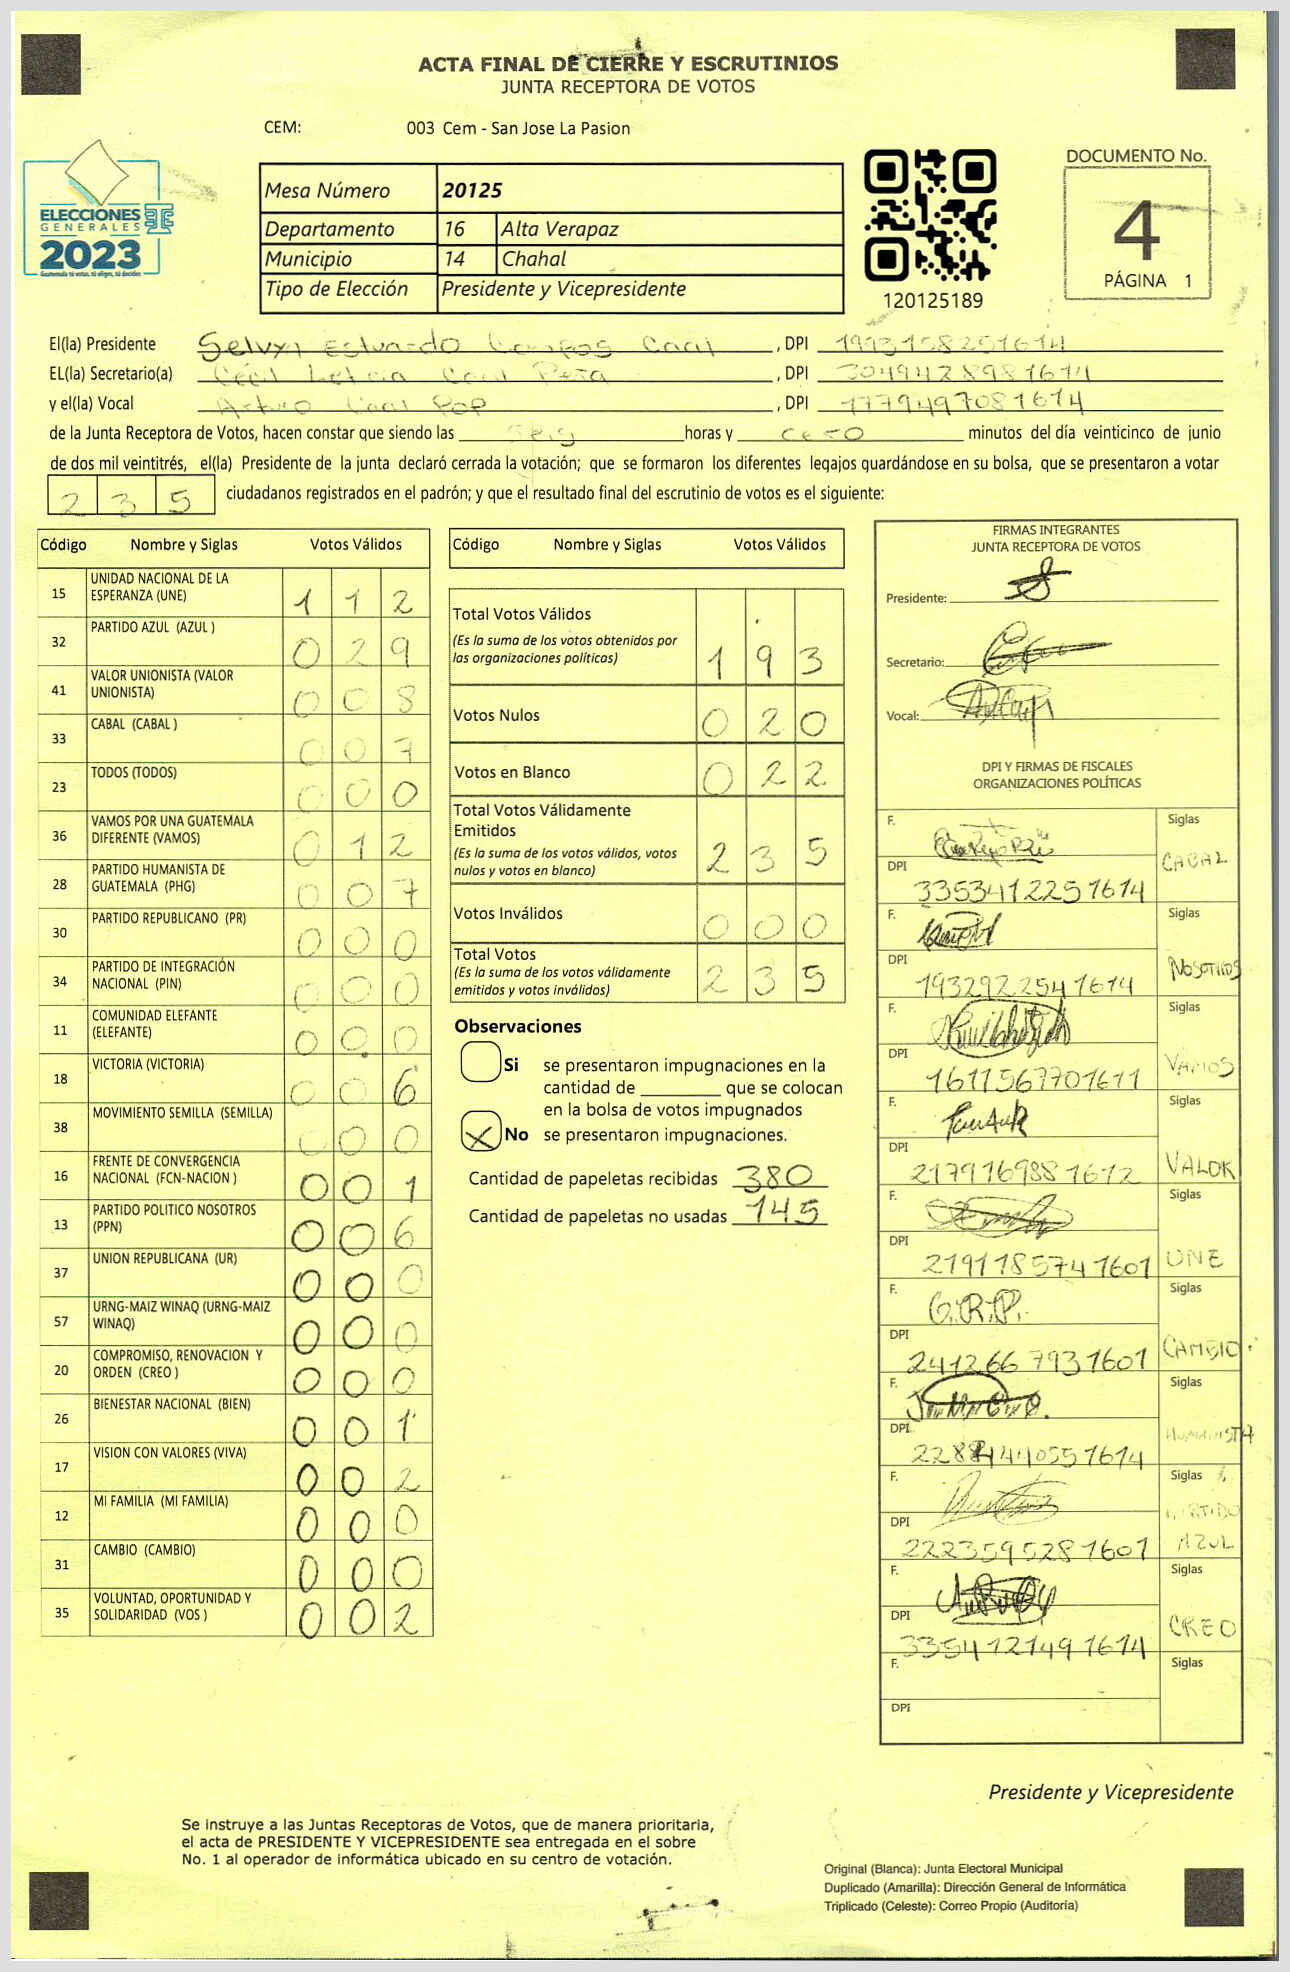 ACTA FINAL DE CIERRE Y ESCRUTINIOS
JUNTA RECEPTORA DE VOTOS
CEM: 003 Cem - San Jose La Pasion
ELECCIONES
GENERALES
2023
Guatemala tú votas, tú eliges, tú decides
Mesa Número 20125
Departamento 16 Alta Verapaz
Municipio 14 Chahal
Tipo de Elección Presidente y Vicepresidente
120125189
DOCUMENTO No.
4
PÁGINA 1
El(la) Presidente Selvyn Estuardo Campos Caal, DPI 1993158251614
EL(la) Secretario(a) Cecil Leticia Caal Peña, DPI 3049428981614
y el(la) Vocal Arturo Caal Pop, DPI 1779497081614
de la Junta Receptora de Votos, hacen constar que siendo las seis horas y cero minutos del día veinticinco de junio
de dos mil veintitrés, el(la) Presidente de la junta declaró cerrada la votación; que se formaron los diferentes legajos guardándose en su bolsa, que se presentaron a votar
235 ciudadanos registrados en el padrón; y que el resultado final del escrutinio de votos es el siguiente:
Código Nombre y Siglas Votos Válidos
15 UNIDAD NACIONAL DE LA ESPERANZA (UNE) 112
32 PARTIDO AZUL (AZUL ) 029
41 VALOR UNIONISTA (VALOR UNIONISTA) 008
33 CABAL (CABAL ) 007
23 TODOS (TODOS) 000
36 VAMOS POR UNA GUATEMALA DIFERENTE (VAMOS) 012
28 PARTIDO HUMANISTA DE GUATEMALA (PHG) 007
30 PARTIDO REPUBLICANO (PR) 000
34 PARTIDO DE INTEGRACIÓN NACIONAL (PIN) 000
11 COMUNIDAD ELEFANTE (ELEFANTE) 000
18 VICTORIA (VICTORIA) 006
38 MOVIMIENTO SEMILLA (SEMILLA) 000
16 FRENTE DE CONVERGENCIA NACIONAL (FCN-NACION ) 001
13 PARTIDO POLITICO NOSOTROS (PPN) 006
37 UNION REPUBLICANA (UR) 000
57 URNG-MAIZ WINAQ (URNG-MAIZ WINAQ) 000
20 COMPROMISO, RENOVACION Y ORDEN (CREO ) 000
26 BIENESTAR NACIONAL (BIEN) 001
17 VISION CON VALORES (VIVA) 002
12 MI FAMILIA (MI FAMILIA) 000
31 CAMBIO (CAMBIO) 000
35 VOLUNTAD, OPORTUNIDAD Y SOLIDARIDAD (VOS ) 002
Código Nombre y Siglas Votos Válidos
Total Votos Válidos 193
(Es la suma de los votos obtenidos por
las organizaciones políticas)
Votos Nulos 020
Votos en Blanco 022
Total Votos Válidamente
Emitidos 235
(Es la suma de los votos válidos, votos
nulos y votos en blanco)
Votos Inválidos 000
Total Votos 235
(Es la suma de los votos válidamente
emitidos y votos inválidos)
Observaciones
Si se presentaron impugnaciones en la
cantidad de ________ que se colocan
en la bolsa de votos impugnados
X No se presentaron impugnaciones.
Cantidad de papeletas recibidas 380
Cantidad de papeletas no usadas 145
FIRMAS INTEGRANTES
JUNTA RECEPTORA DE VOTOS
Presidente:
Secretario:
Vocal:
DPI Y FIRMAS DE FISCALES
ORGANIZACIONES POLÍTICAS
F. Siglas CABAL
DPI 3353412251614
F. Siglas NOSOTROS
DPI 1932922541614
F. Siglas VAMOS
DPI 1611567701611
F. Siglas VALOR
DPI 2179169881612
F. Siglas UNE
DPI 2191185741601
F. G.R.P. Siglas CAMBIO
DPI 2412667931601
F. Siglas HUMANISTA
DPI
F. Siglas PARTIDO AZUL
DPI 2223595281601
F. Siglas CREO
DPI 3354121491614
F. Siglas
DPI
Presidente y Vicepresidente
Se instruye a las Juntas Receptoras de Votos, que de manera prioritaria,
el acta de PRESIDENTE Y VICEPRESIDENTE sea entregada en el sobre
No. 1 al operador de informática ubicado en su centro de votación.
Original (Blanca): Junta Electoral Municipal
Duplicado (Amarilla): Dirección General de Informática
Triplicado (Celeste): Correo Propio (Auditoria)